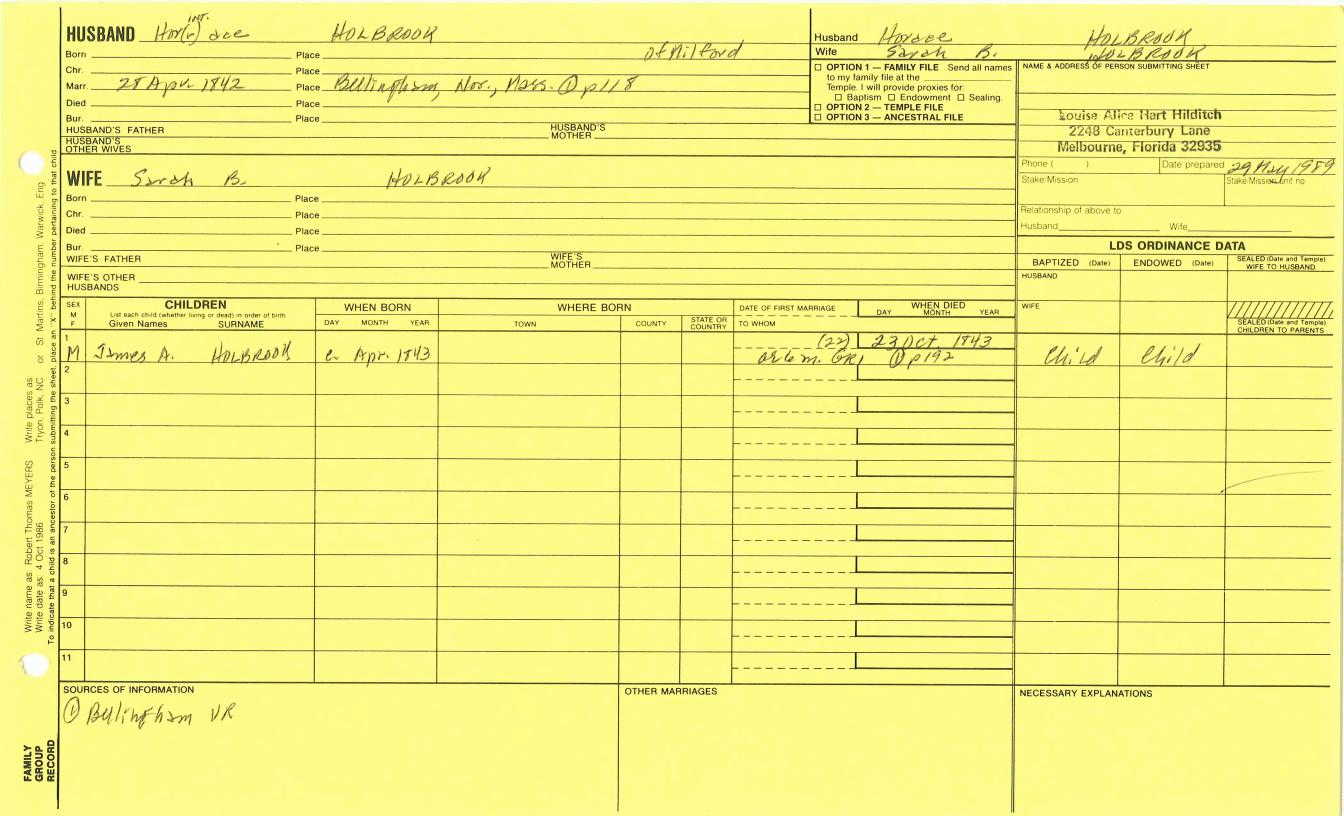 INT.
HUSBAND Hor(r)ace HOLBROOK
Born Place of Milford
Chr. Place
Marr. 28 Apr 1842 Place Bellingham, Nor., Mass. ① p118
Died Place
Bur. Place
HUSBAND'S FATHER HUSBAND'S MOTHER
HUSBAND'S OTHER WIVES
WIFE Sarah B. HOLBROOK
Born Place
Chr. Place
Died Place
Bur. Place
WIFE'S FATHER WIFE'S MOTHER
WIFE'S OTHER HUSBANDS
Husband Horace HOLBROOK
Wife Sarah B. HOLBROOK
OPTION 1 — FAMILY FILE Send all names
to my family file at the
Temple. I will provide proxies for:
Baptism Endowment Sealing.
OPTION 2 — TEMPLE FILE
OPTION 3 — ANCESTRAL FILE
NAME & ADDRESS OF PERSON SUBMITTING SHEET
Louise Alice Hart Hilditch
2248 Canterbury Lane
Melbourne, Florida 32935
Phone ( ) Date prepared 29 May 1989
Stake/Mission Stake/Mission unit no
Relationship of above to
Husband Wife
LDS ORDINANCE DATA
BAPTIZED (Date) ENDOWED (Date) SEALED (Date and Temple) WIFE TO HUSBAND
HUSBAND
WIFE
SEALED (Date and Temple) CHILDREN TO PARENTS
SEX M F
CHILDREN
List each child (whether living or dead) in order of birth
Given Names SURNAME
WHEN BORN
DAY MONTH YEAR
WHERE BORN
TOWN COUNTY STATE OR COUNTRY
DATE OF FIRST MARRIAGE
TO WHOM
WHEN DIED
DAY MONTH YEAR
1 (22) 23 Oct. 1843
M James A. HOLBROOK c. Apr. 1843 ae 6 m. GR1 ① p192 Child Child
2
3
4
5
6
7
8
9
10
11
SOURCES OF INFORMATION
① Bellingham VR
OTHER MARRIAGES
NECESSARY EXPLANATIONS
Write name as: Robert Thomas MEYERS Write places as: Tryon, Polk, NC or St Martins, Birmingham, Warwick, Eng
Write date as: 4 Oct 1986
To indicate that a child is an ancestor of the person submitting the sheet, place an "X" behind the number pertaining to that child.
FAMILY
GROUP
RECORD